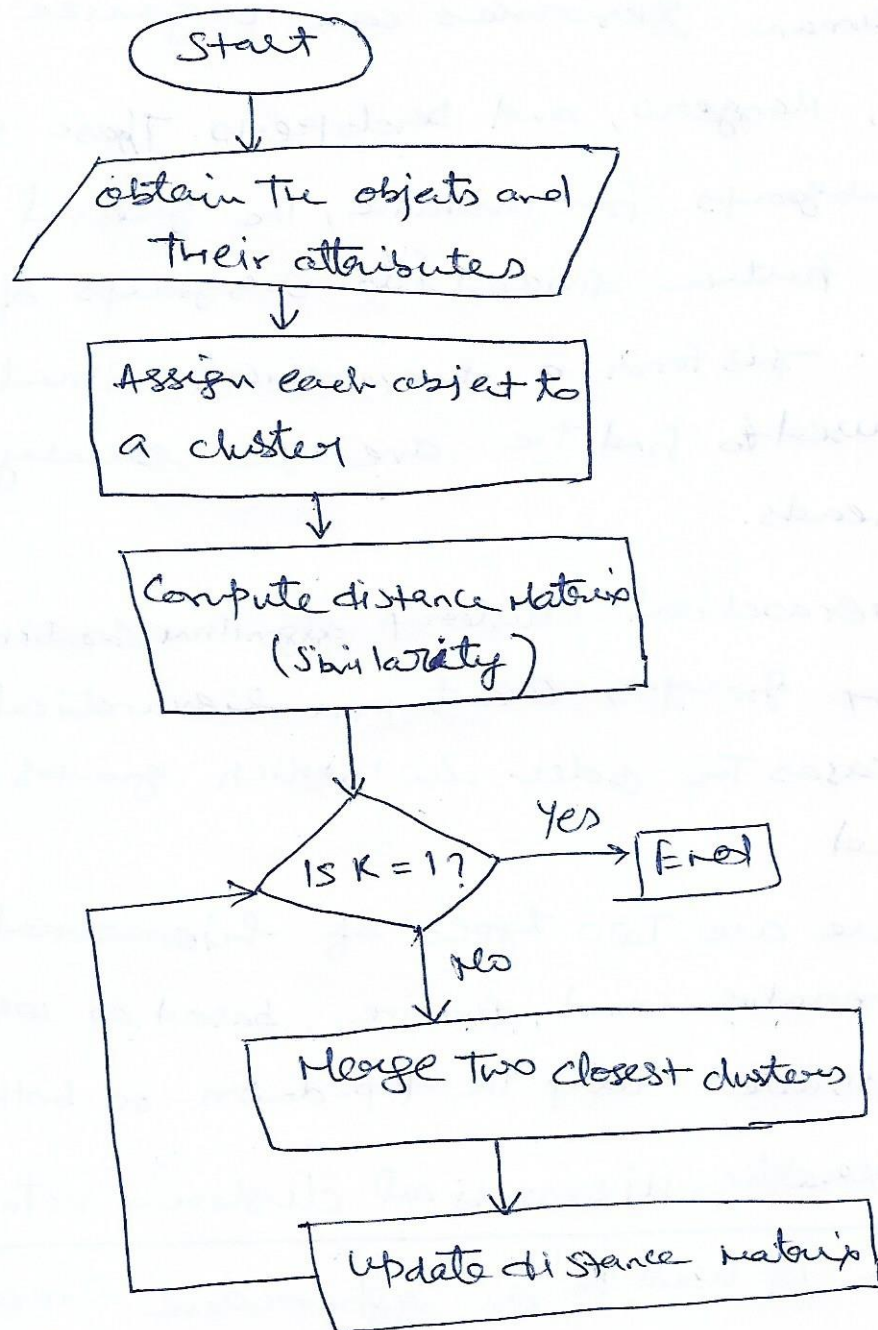 Start
obtain the objects and
their attributes
Assign each object to
a cluster
Compute distance Matrix
(Similarity)
Is K = 1?
Yes
End
No
Merge Two closest clusters
update distance matrix